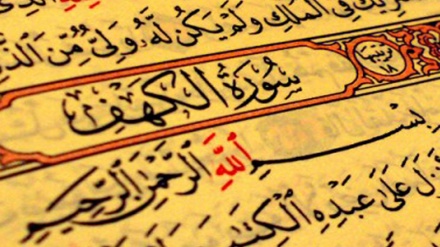 شَرِيكٌ فِى ٱلْمُلْكِ وَلَمْ يَكُن لَّهُۥ وَلِىٌّ مِّنَ ٱلذُّ
سُورَةُ الكَهْفِ
بِسْمِ ٱللَّهِ ٱلرَّحْمَٰنِ ٱلرَّحِيمِ
عَلَىٰ عَبْدِهِ ٱلْكِتَٰبَ